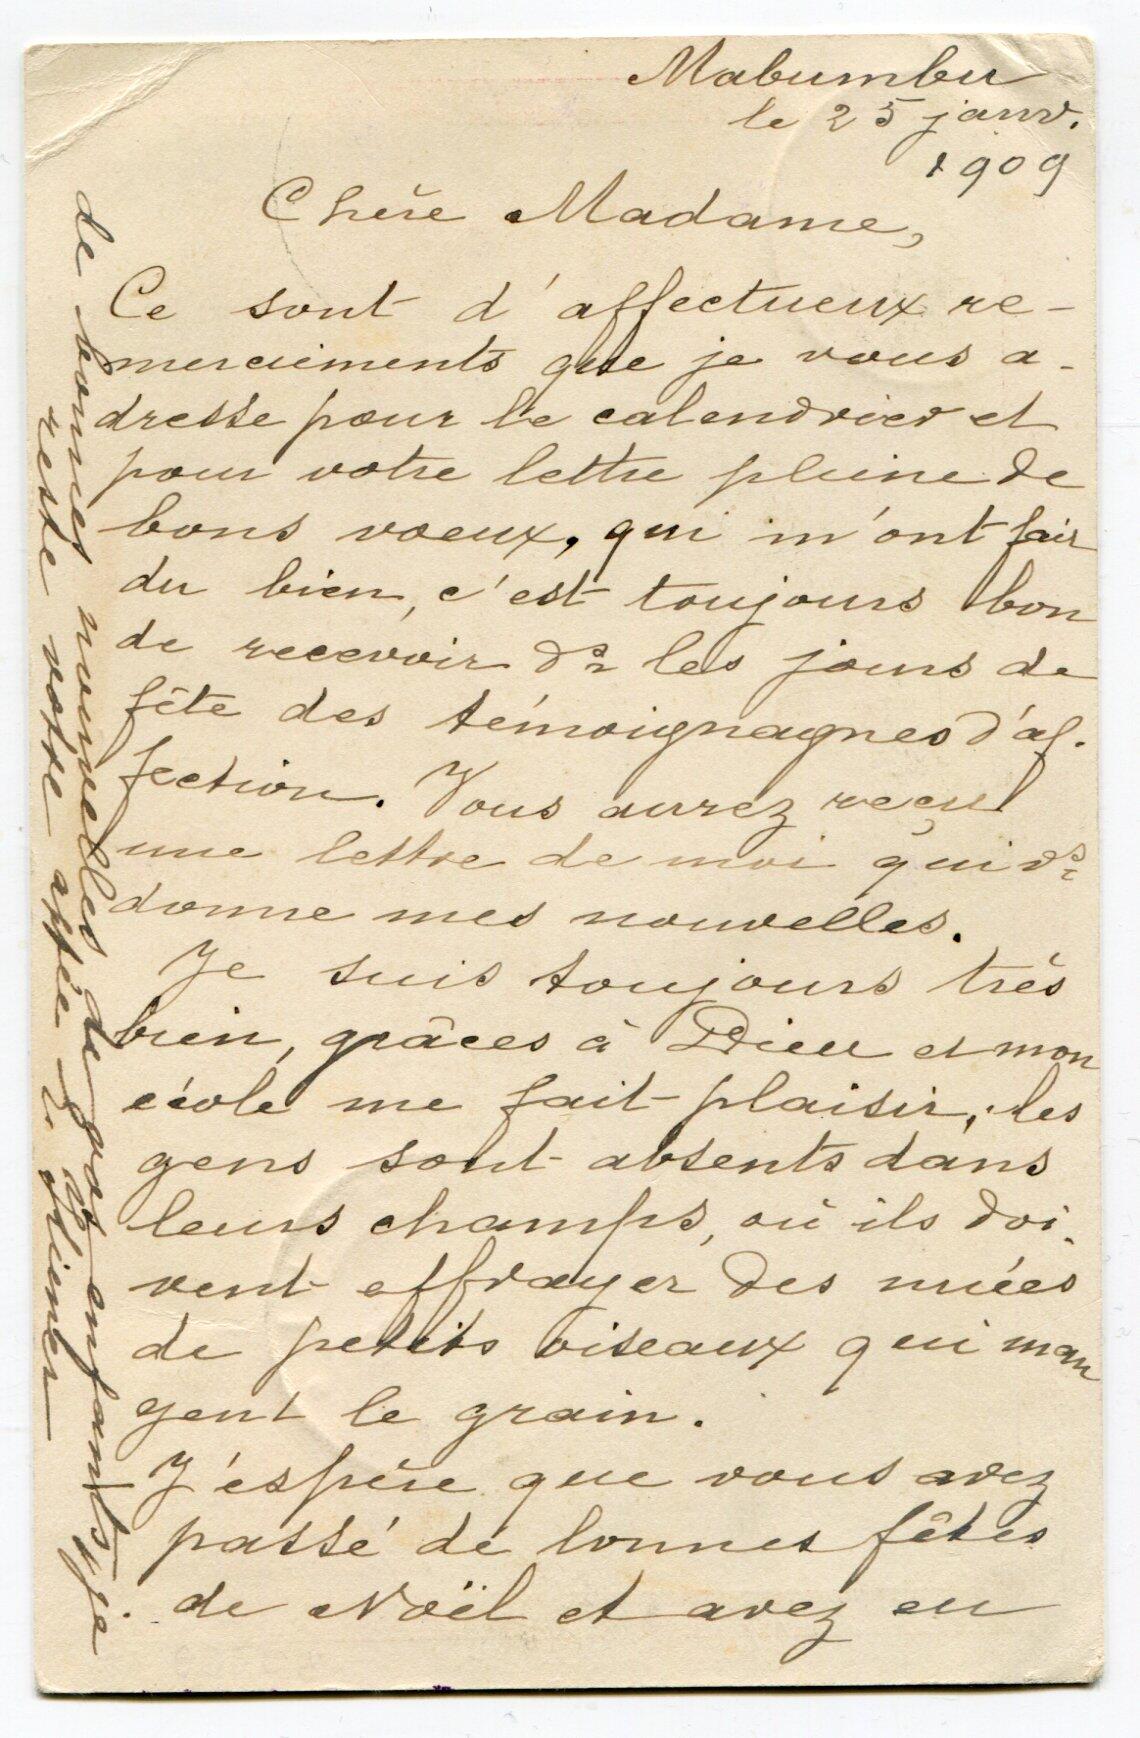 Mabumbu
le 25 janv.
1909
Chère Madame,
Ce sont d'affectueux re-
merciements que je vous a-
dresse pour le calendrier et
pour votre lettre pleine de
bons voeux, qui m'ont fait
du bien, c'est toujours bon
de recevoir ds les jours de
fête des témoignagnes d'af-
fection. Vous aurez reçu
une lettre de moi qui vs
donne mes nouvelles.
Je suis toujours très
bien, grâces à Dieu et mon
école me fait plaisir, les
gens sont absents dans
leurs champs, où ils doi-
vent effrayer des nuées
de petits oiseaux qui man
gent le grain.
J'espère que vous avez
passé de bonnes fêtes
de Noël et avez eu
de bonnes nouvelles de vos enfants, je
reste votre affée